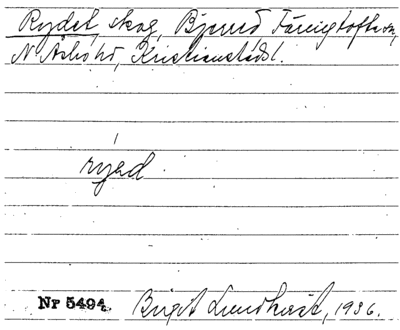 Rydet, skog, Bjernö, Färingtofta sn,
N. Åsbo hd, Kristianstads l.
ryed
Nr 5494. Birgit Lundkvist, 1936.